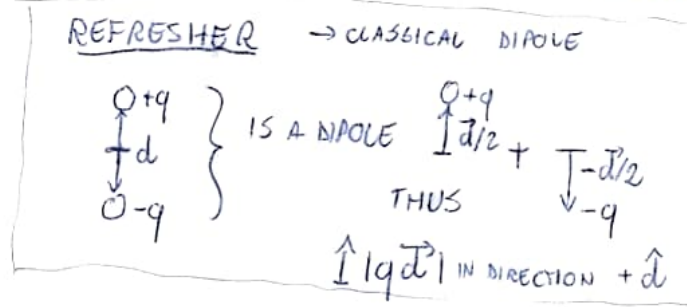 REFRESHER → CLASSICAL DIPOLE
+q
d
-q
IS A DIPOLE
+q
d⃗/2 +
-d⃗/2
-q
THUS
|qd⃗| IN DIRECTION + d̂